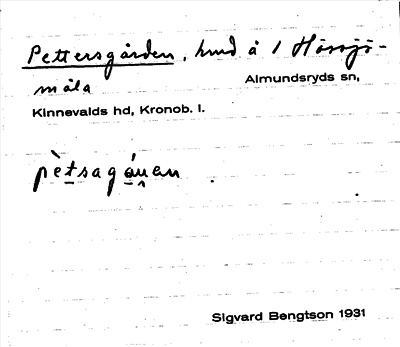 Pettersgården, hmd å 1 Hörsjö-
måla Almundsryds sn,
Kinnevalds hd, Kronob. l.
pètsagánan
Sigvard Bengtson 1931